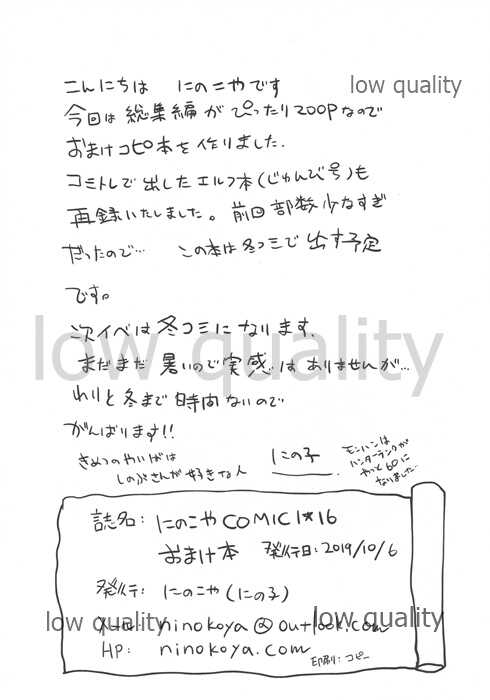 こんにちは にのこやです
low quality
今回は 総集編が ぴったり200Pなので
おまけコピ本を作りました.
コミトレで出したエルフ本(じゅんび号)も
再録いたしました。前回部数少なすぎ
だったので… この本は冬コミで出す予定
です。
low quality
次イベは冬コミになります.
まだまだ暑いので実感はありませんが…
わりと冬まで時間ないので
がんばります!!
きめつのやいばは
しのぶさんが好きな人
にの子
モンハンは
ハンターランクが
やっと60に
なりました
誌名: にのこや COMIC1★16
おまけ本 発行日:2019/10/6
発行: にのこや(にの子)
low quality
メール: ninokoya@outlook.com
low quality
HP: ninokoya.com
印刷:コピー